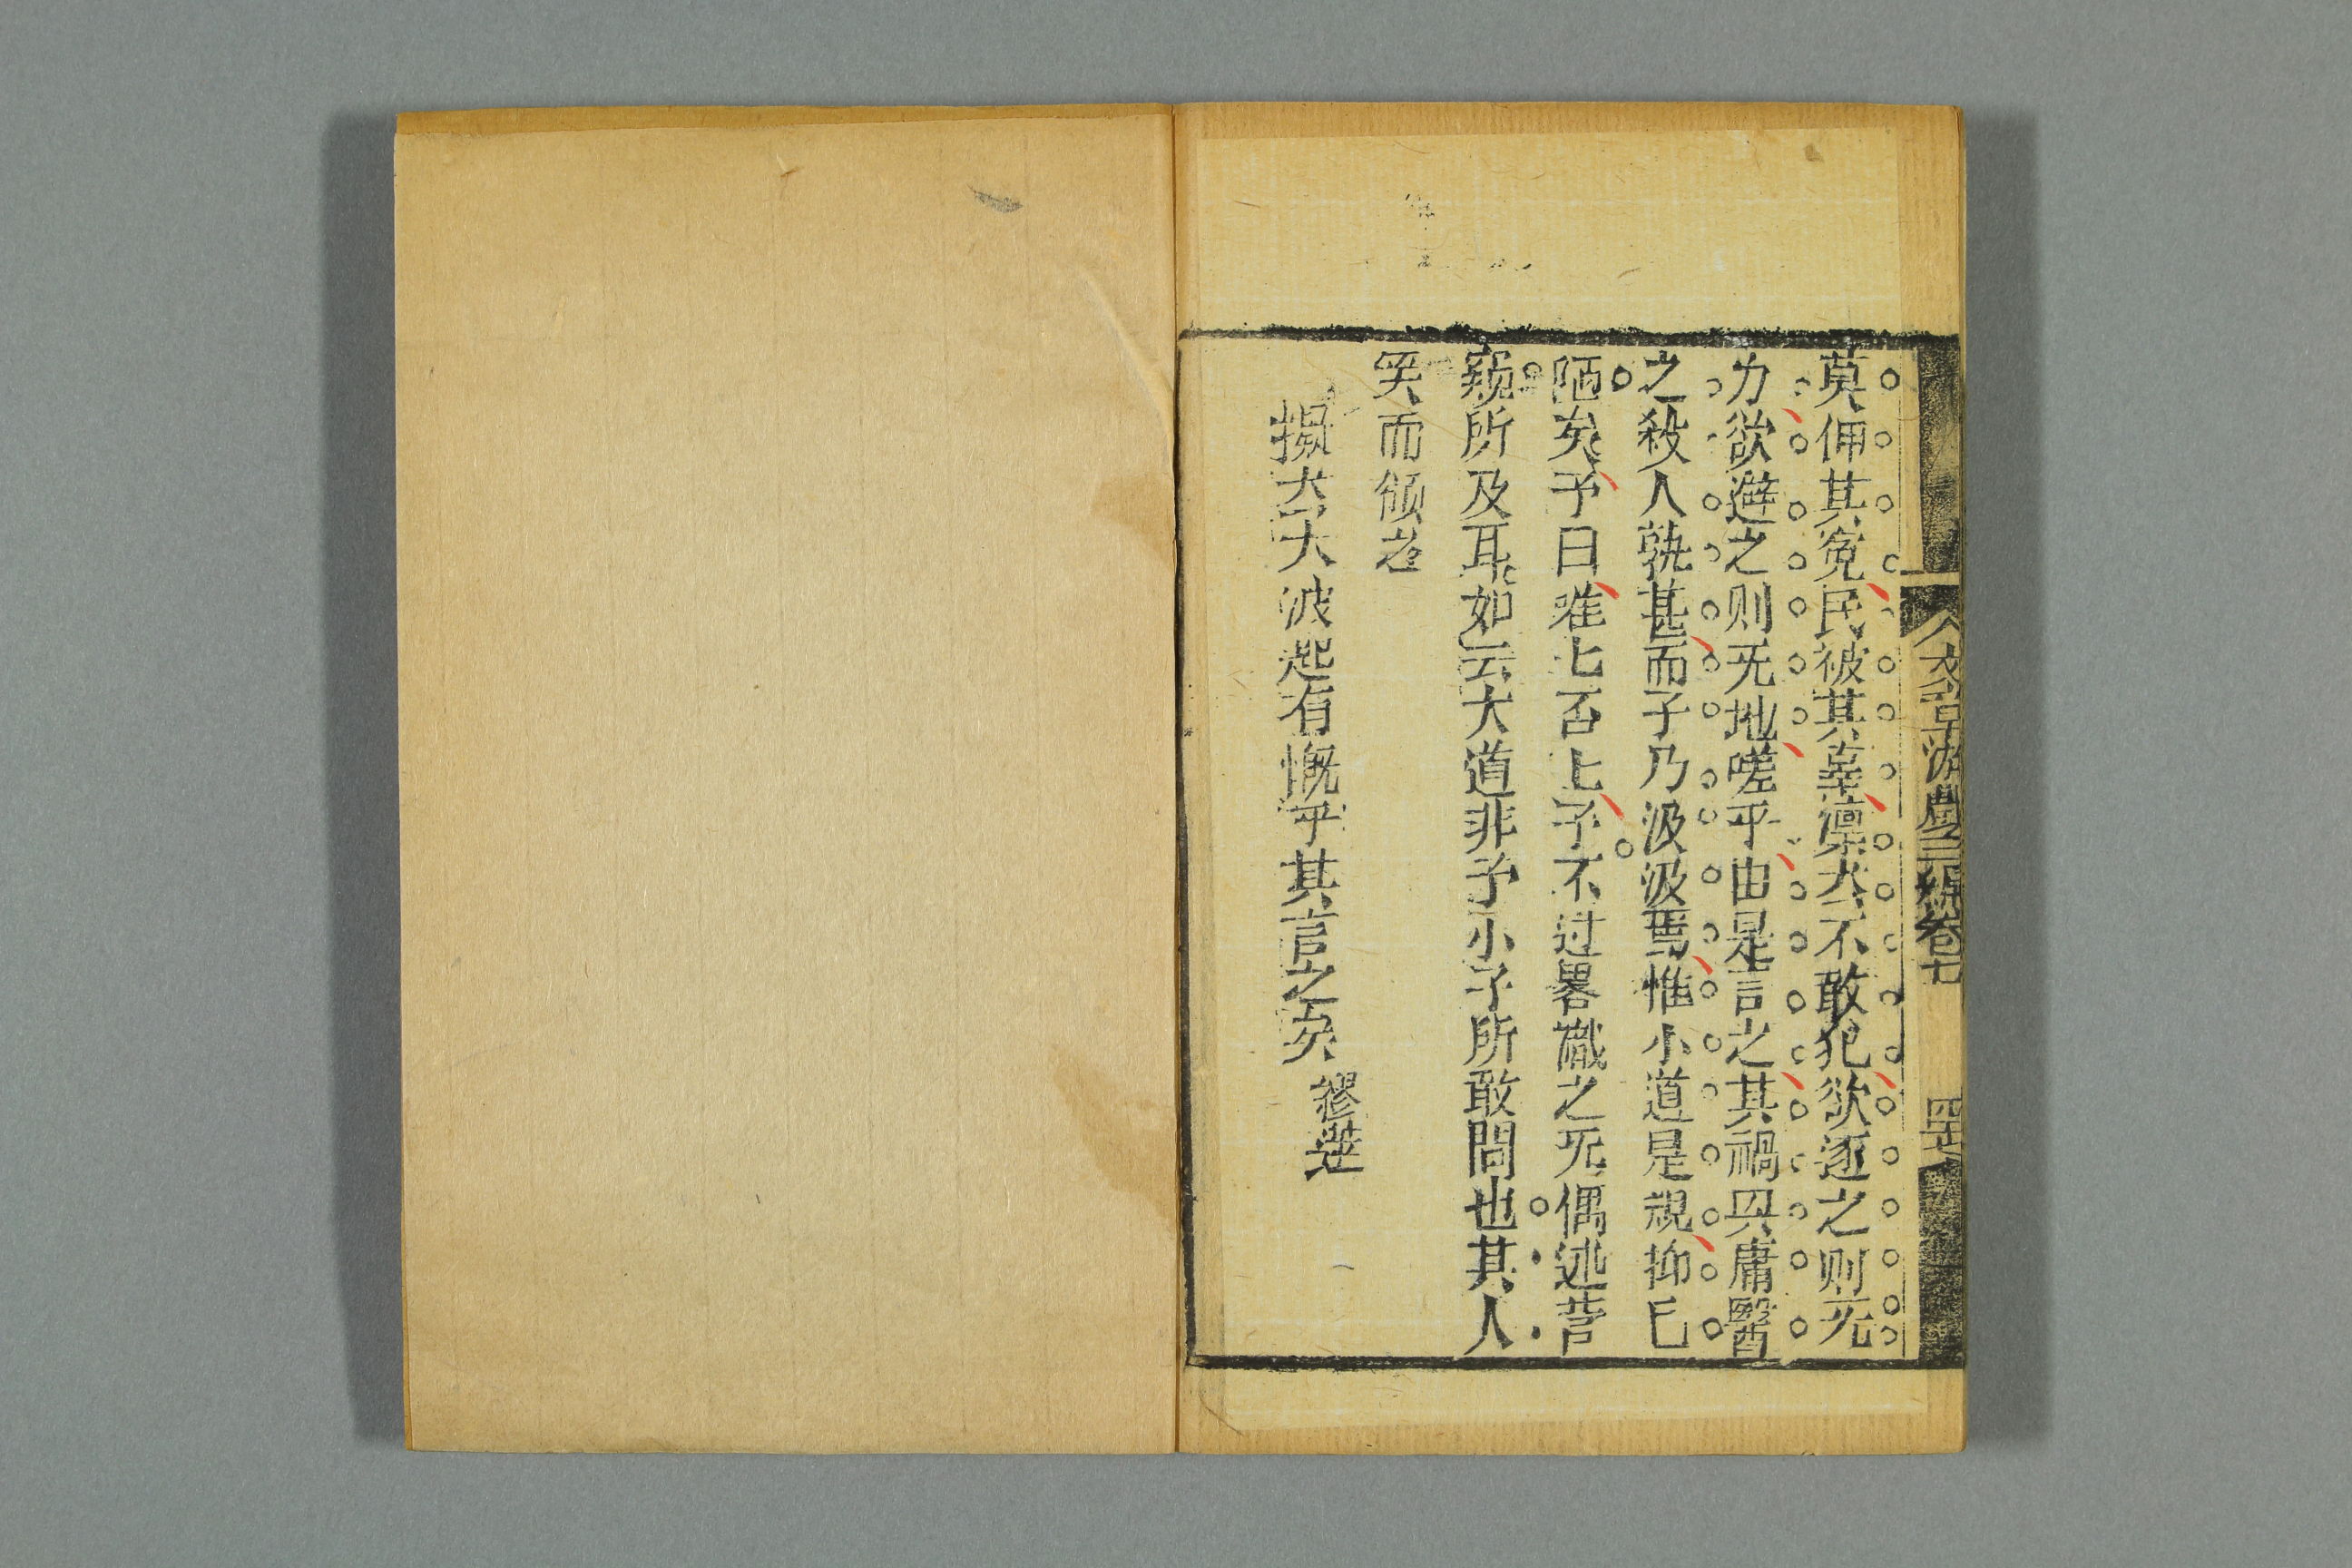 莫俑其冤民被其辜凛犬不敢犯欲逐之则无
力欲避之则无地嗟乎由是言之其禍與庸醫
之殺人孰甚而子乃汲汲焉惟小道是視抑已
陋矣予曰唯七否七予不过畧識之无偶述菅
窥所及耳如云大道非予小子所敢問也其人
笑而頷之
犬大波起有慨乎其言之矣 繆選
卷七